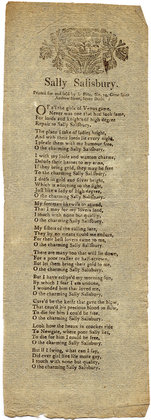 Sally Salisbury.
Printed and sold by J. Pitts, No. 14, Great Saint
Andrew Street, Seven Dials.
OF all the girls of Venus game,
Never was one that had such fame,
For lords and knights of high degree
Repair to Sally Salisbury.
The plans I take of ladies bright,
And with their lords lie every night,
I please them with my humour free,
O the charming Sally Salisbury.
I with my looks and wanton charms,
Delude their lords to my arms,
they being grid, they may be free
To the charming Sally Salisbury.
I dress in gold and silver bright,
Which is amazing to the sight,
Just like a lady of high degree,
O the charming Sally Salisbury.
My servants they
For I may for my lovers send,
I touch with none but quality,
O the charming Sally Salisbury.
My sisters of the calling late,
They by my means could me endure,
For their best lovers came to me,
O the charming Sally Salisbury.
There are many too that will lie down,
For a poor crasher or half a crown,
But let them bring their gold to me
O the charming Sally Salisbury.
But I have eclips'd my morning sun,
By which I fear I am undone,
I wounded him that loved me,
O the charming Sally Salisbury.
Curs'd be the knife that gave the blow,
That caus'd his precious blood to flow,
To die for him I could be free,
O the charming Sally Salisbury.
Look how the beaus in coaches ride
To Newgate, where poor Sally lies,
To die for him I could be free,
O the charming Sally Salisbury.
But if I swing, what can I say,
Did ever girl like me more gay
I touch with none but quality
O the charming Sally Salisbury.